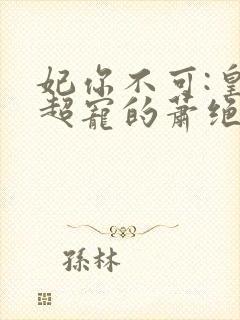 妃你不可:皇
超宠的萧绝
孫林